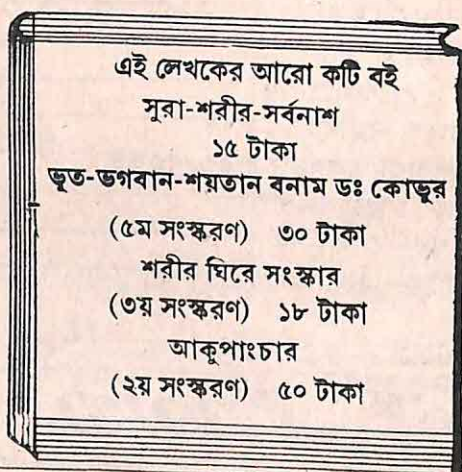 এই লেখকের আরো কটি বই
সুরা-শরীর-সর্বনাশ
১৫ টাকা
ভূত-ভগবান-শয়তান বনাম ডঃ কোভূর
(৫ম সংস্করণ) ৩০ টাকা
শরীর ঘিরে সংস্কার
(৩য় সংস্করণ) ১৮ টাকা
আকুপাংচার
(২য় সংস্করণ) ৫০ টাকা